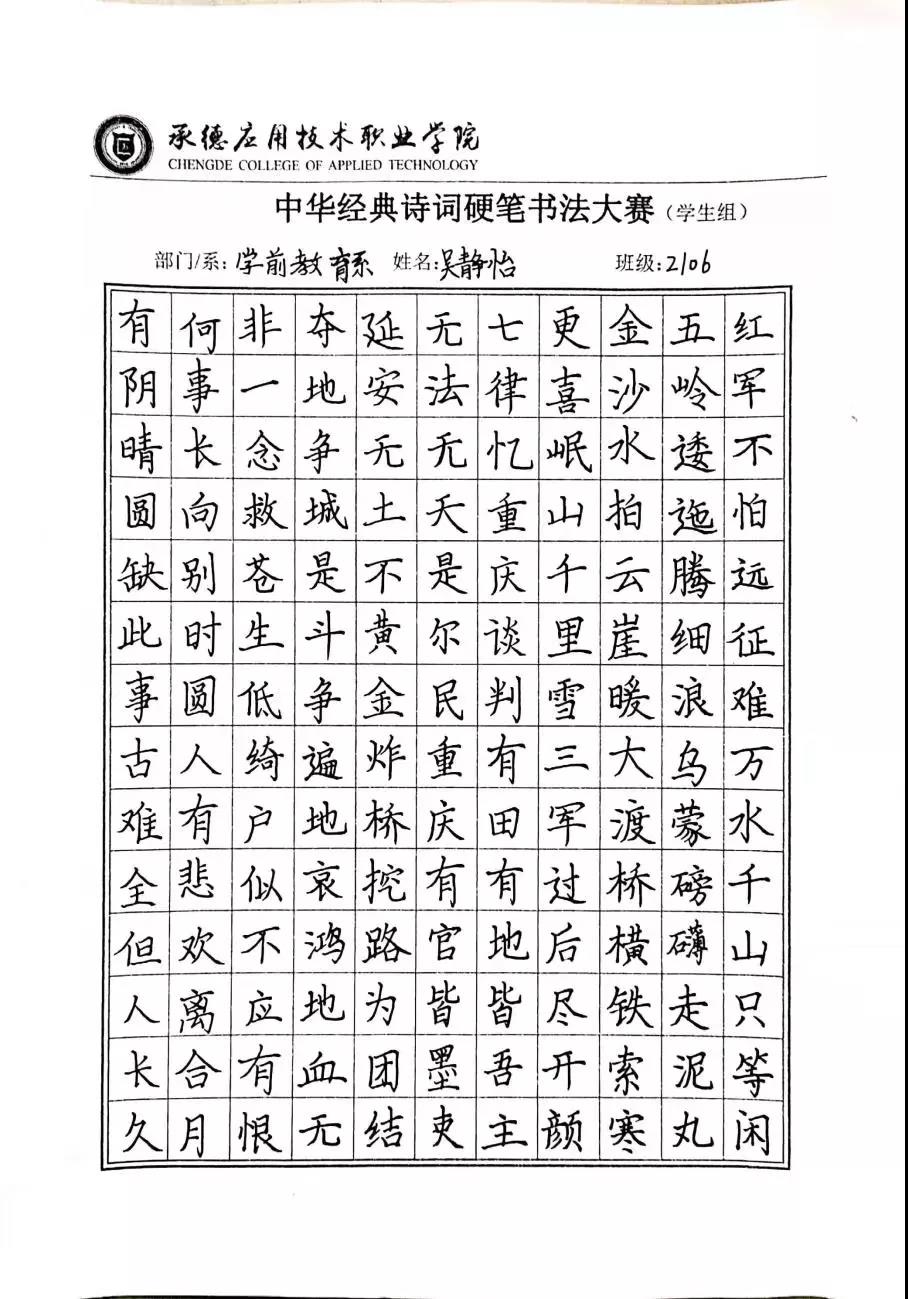 承德应用技术职业学院
CHENGDE COLLEGE OF APPLIED TECHNOLOGY
中华经典诗词硬笔书法大赛（学生组）
部门/系：学前教育系 姓名：吴静怡 班级：2106
红军不怕远征难万水千山只等闲
五岭逶迤腾细浪乌蒙磅礴走泥丸
金沙水拍云崖暖大渡桥横铁索寒
更喜岷山千里雪三军过后尽开颜
七律忆重庆谈判有田有地皆吾主
无法无天是尔民重庆有官皆墨吏
延安无土不黄金炸桥挖路为团结
夺地争城是斗争遍地哀鸿地血无
非一念救苍生低绮户似不应有恨
何事长向别时圆人有悲欢离合月
有阴晴圆缺此事古难全但人长久